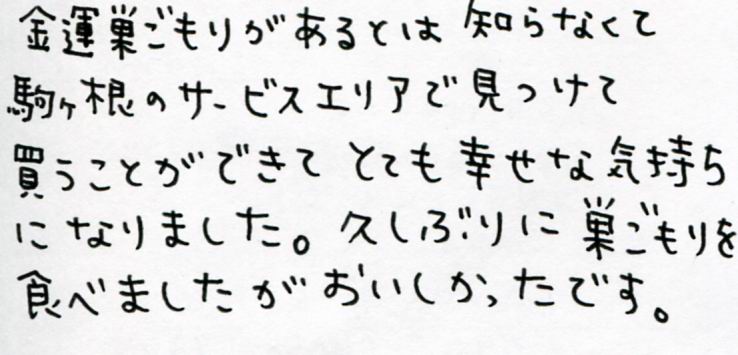 金運巣ごもりがあるとは 知らなくて
駒ヶ根のサービスエリアで見つけて
買うことができて とても幸せな気持ち
になりました。久しぶりに巣ごもりを
食べましたがおいしかったです。